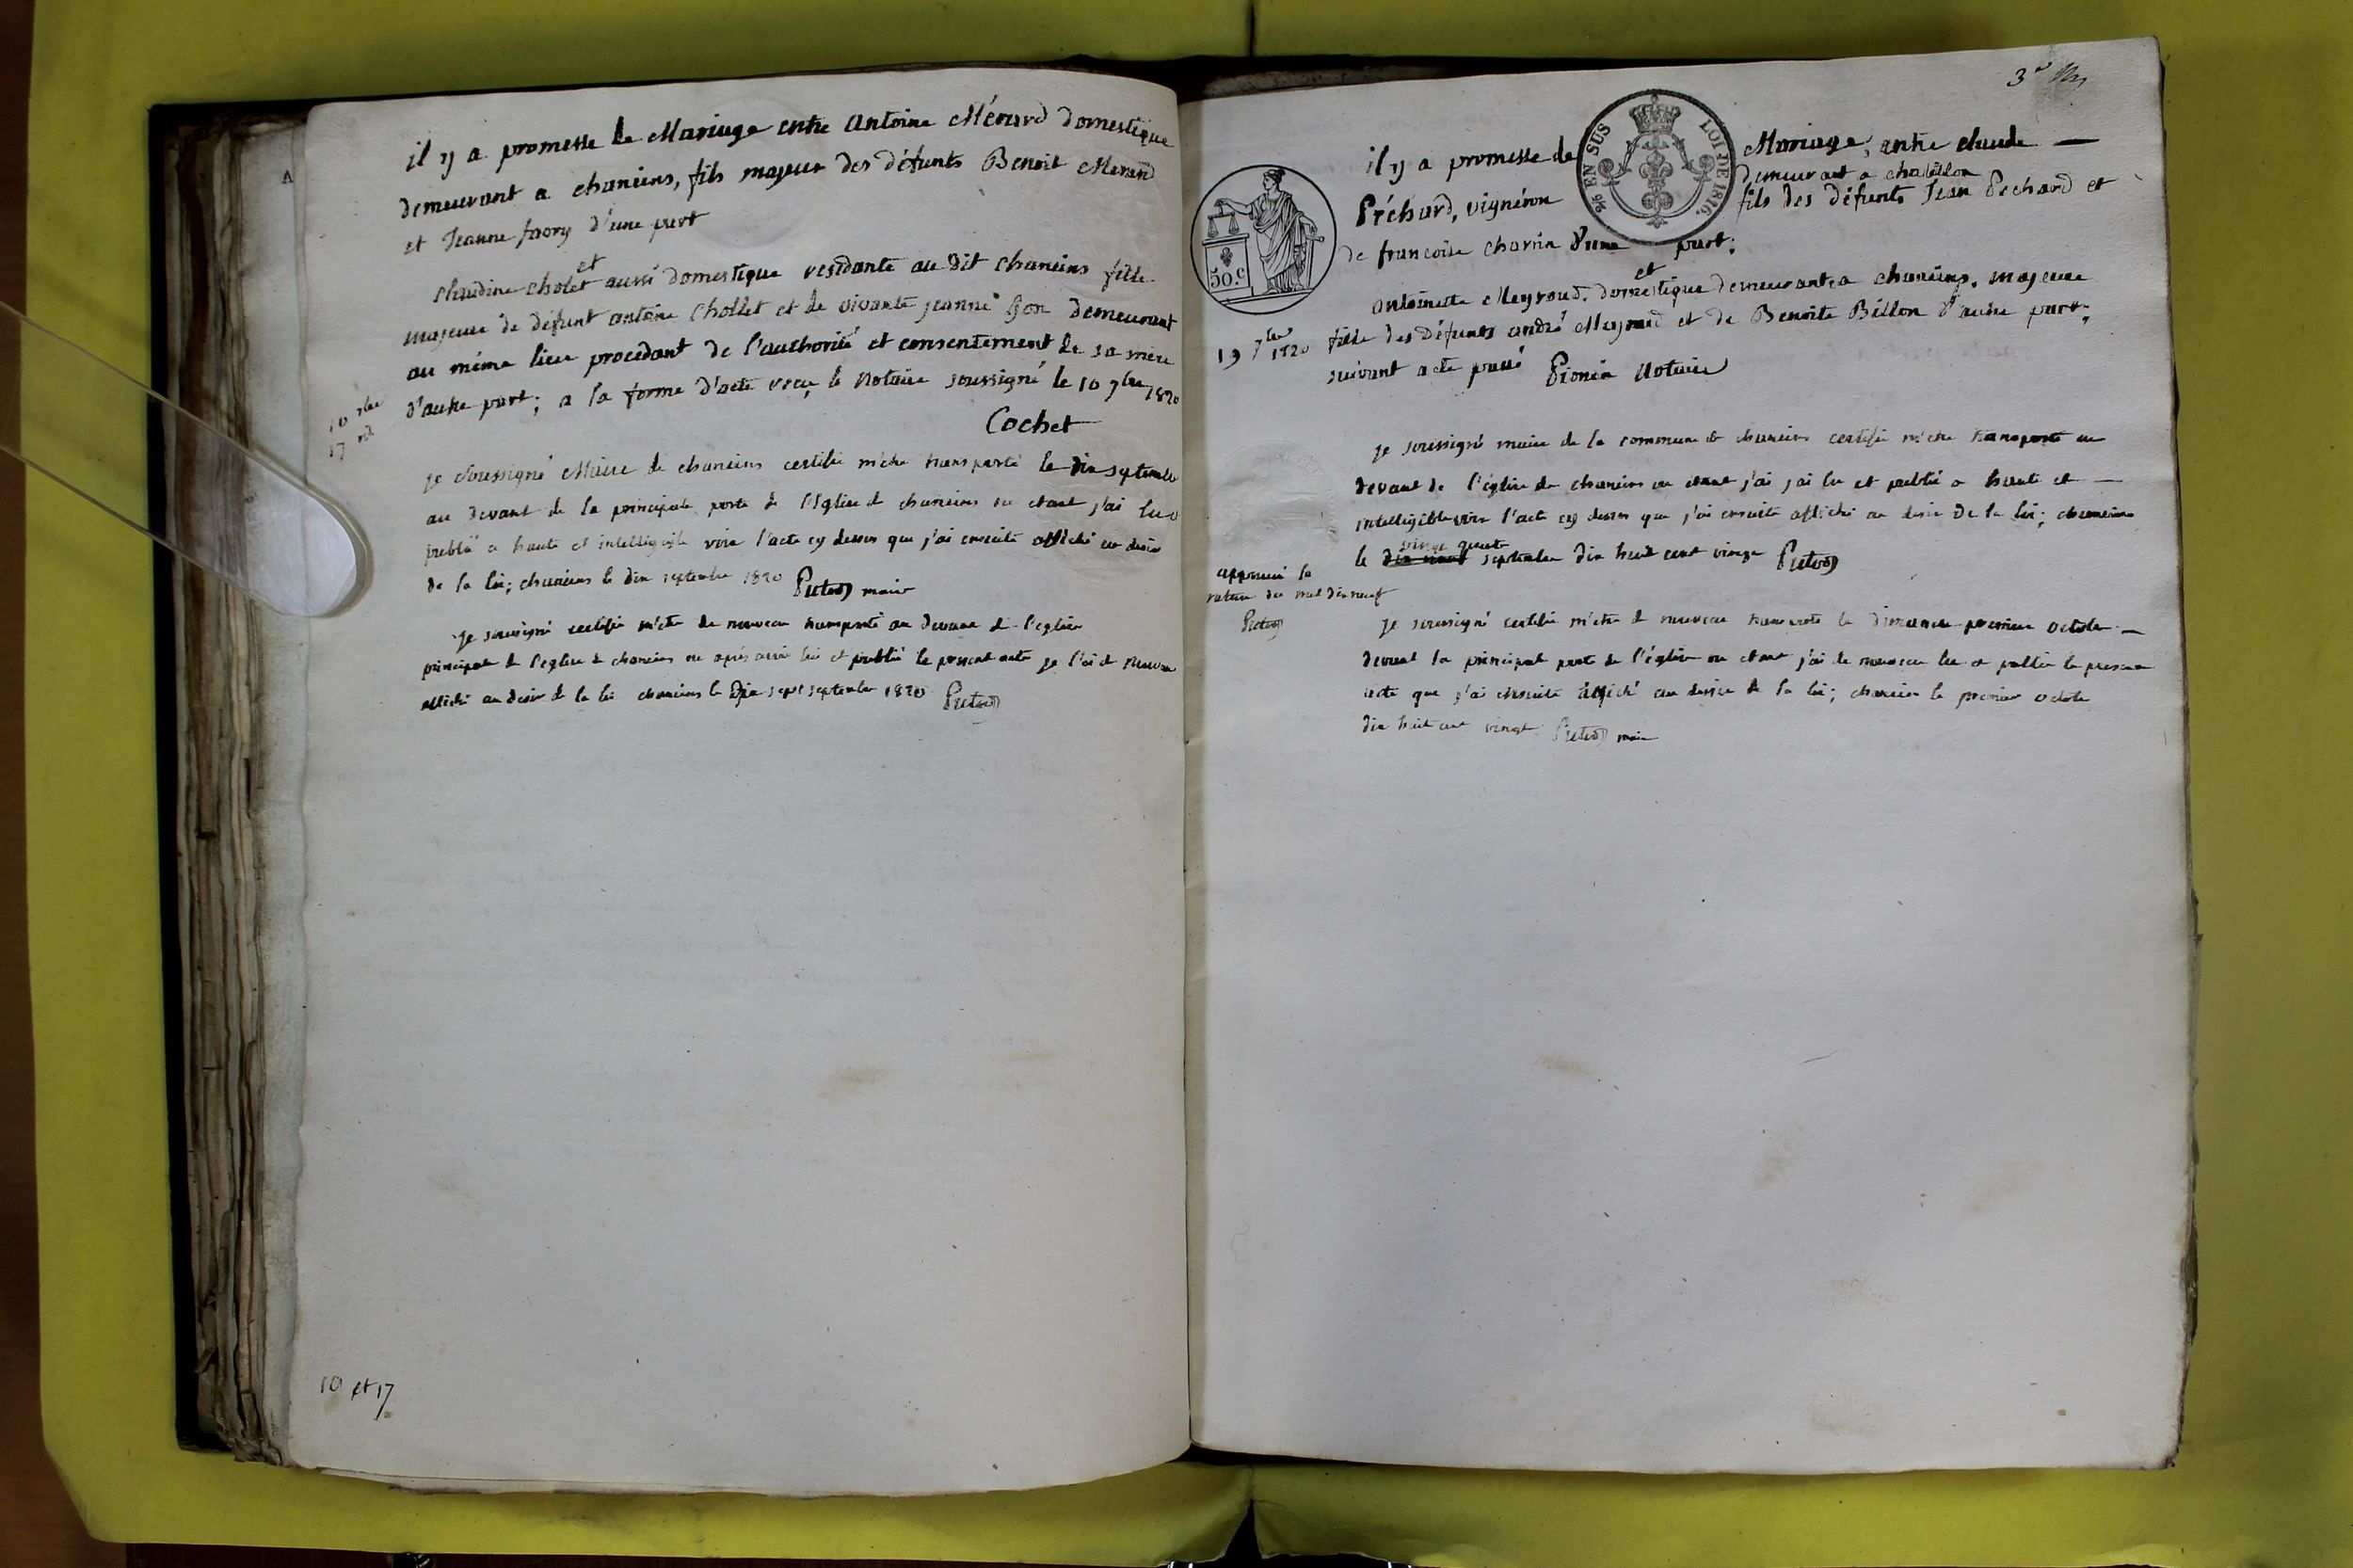 il y a promesse de Mariage entre Antoine Mérard domestique
demeurant a chaneins, fils majeur des défunts Benoit Merard
et Jeanne favry d'une part
et
Claudine Cholet aussi domestique residante au dit chaneins fille
majeure de défunt antoine Chollet et de vivante jeanne Gon demeurant
au même lieu procedant de l'authorité et consentement de sa mère
d'autre part; a la forme d'acte reçu le notaire soussigné le 10 7bre 1820
Cochet
10 7bre
17
je soussigné Maire de chaneins certifie m'etre transporté le dix septembre
au devant de la principale porte de l'église de chaneins ou etant j'ai lu
publié a haute et intelligible voix l'acte cy dessus que j'ai ensuite affiché au desir
de la loi; chaneins le dix septembre 1820 maire
je soussigné certifie m'etre de nouveau transporté au devant de l'eglise
principale de l'eglise de chaneins ou après avoir lu et publié le present acte je l'ai de nouveau
affiché au desir de la loi chaneins le Dix sept septembre 1820
10 et 17
3e
50.C
% EN SUS LOI DE 1816.
il y a promesse de Mariage, entre claude
Préchard, vigneron demeurant a chatillon
fils des défunts Jean Prechard et
de francoise charrin d'une part;
et
antoinette Meyraud, domestique demeurante a chaneins, majeure
fille des défunts andré Meyraud et de Benoite Billon d'autre part;
suivant acte passé Pronin Notaire
19 7bre 1820
je soussigné maire de la commune de chaneins certifie m'etre transporté au
devant de l'église de chaneins ou etant j'ai j'ai lu et publié a haute et
intelligible voix l'acte cy dessus que j'ai ensuite affiché au desir de la loi; chaneins
vingt quatre
le dix neuf septembre dix huit cent vingt
approuvé la
rature du mot dix neuf
je soussigné certifie m'etre de nouveau transporté le dimanche premier octobre
devant la principale porte de l'église ou etant j'ai de nouveau lu et publié le present
acte que j'ai ensuite affiché au desir de la loi; chaneins le premier octobre
dix huit cent vingt maire